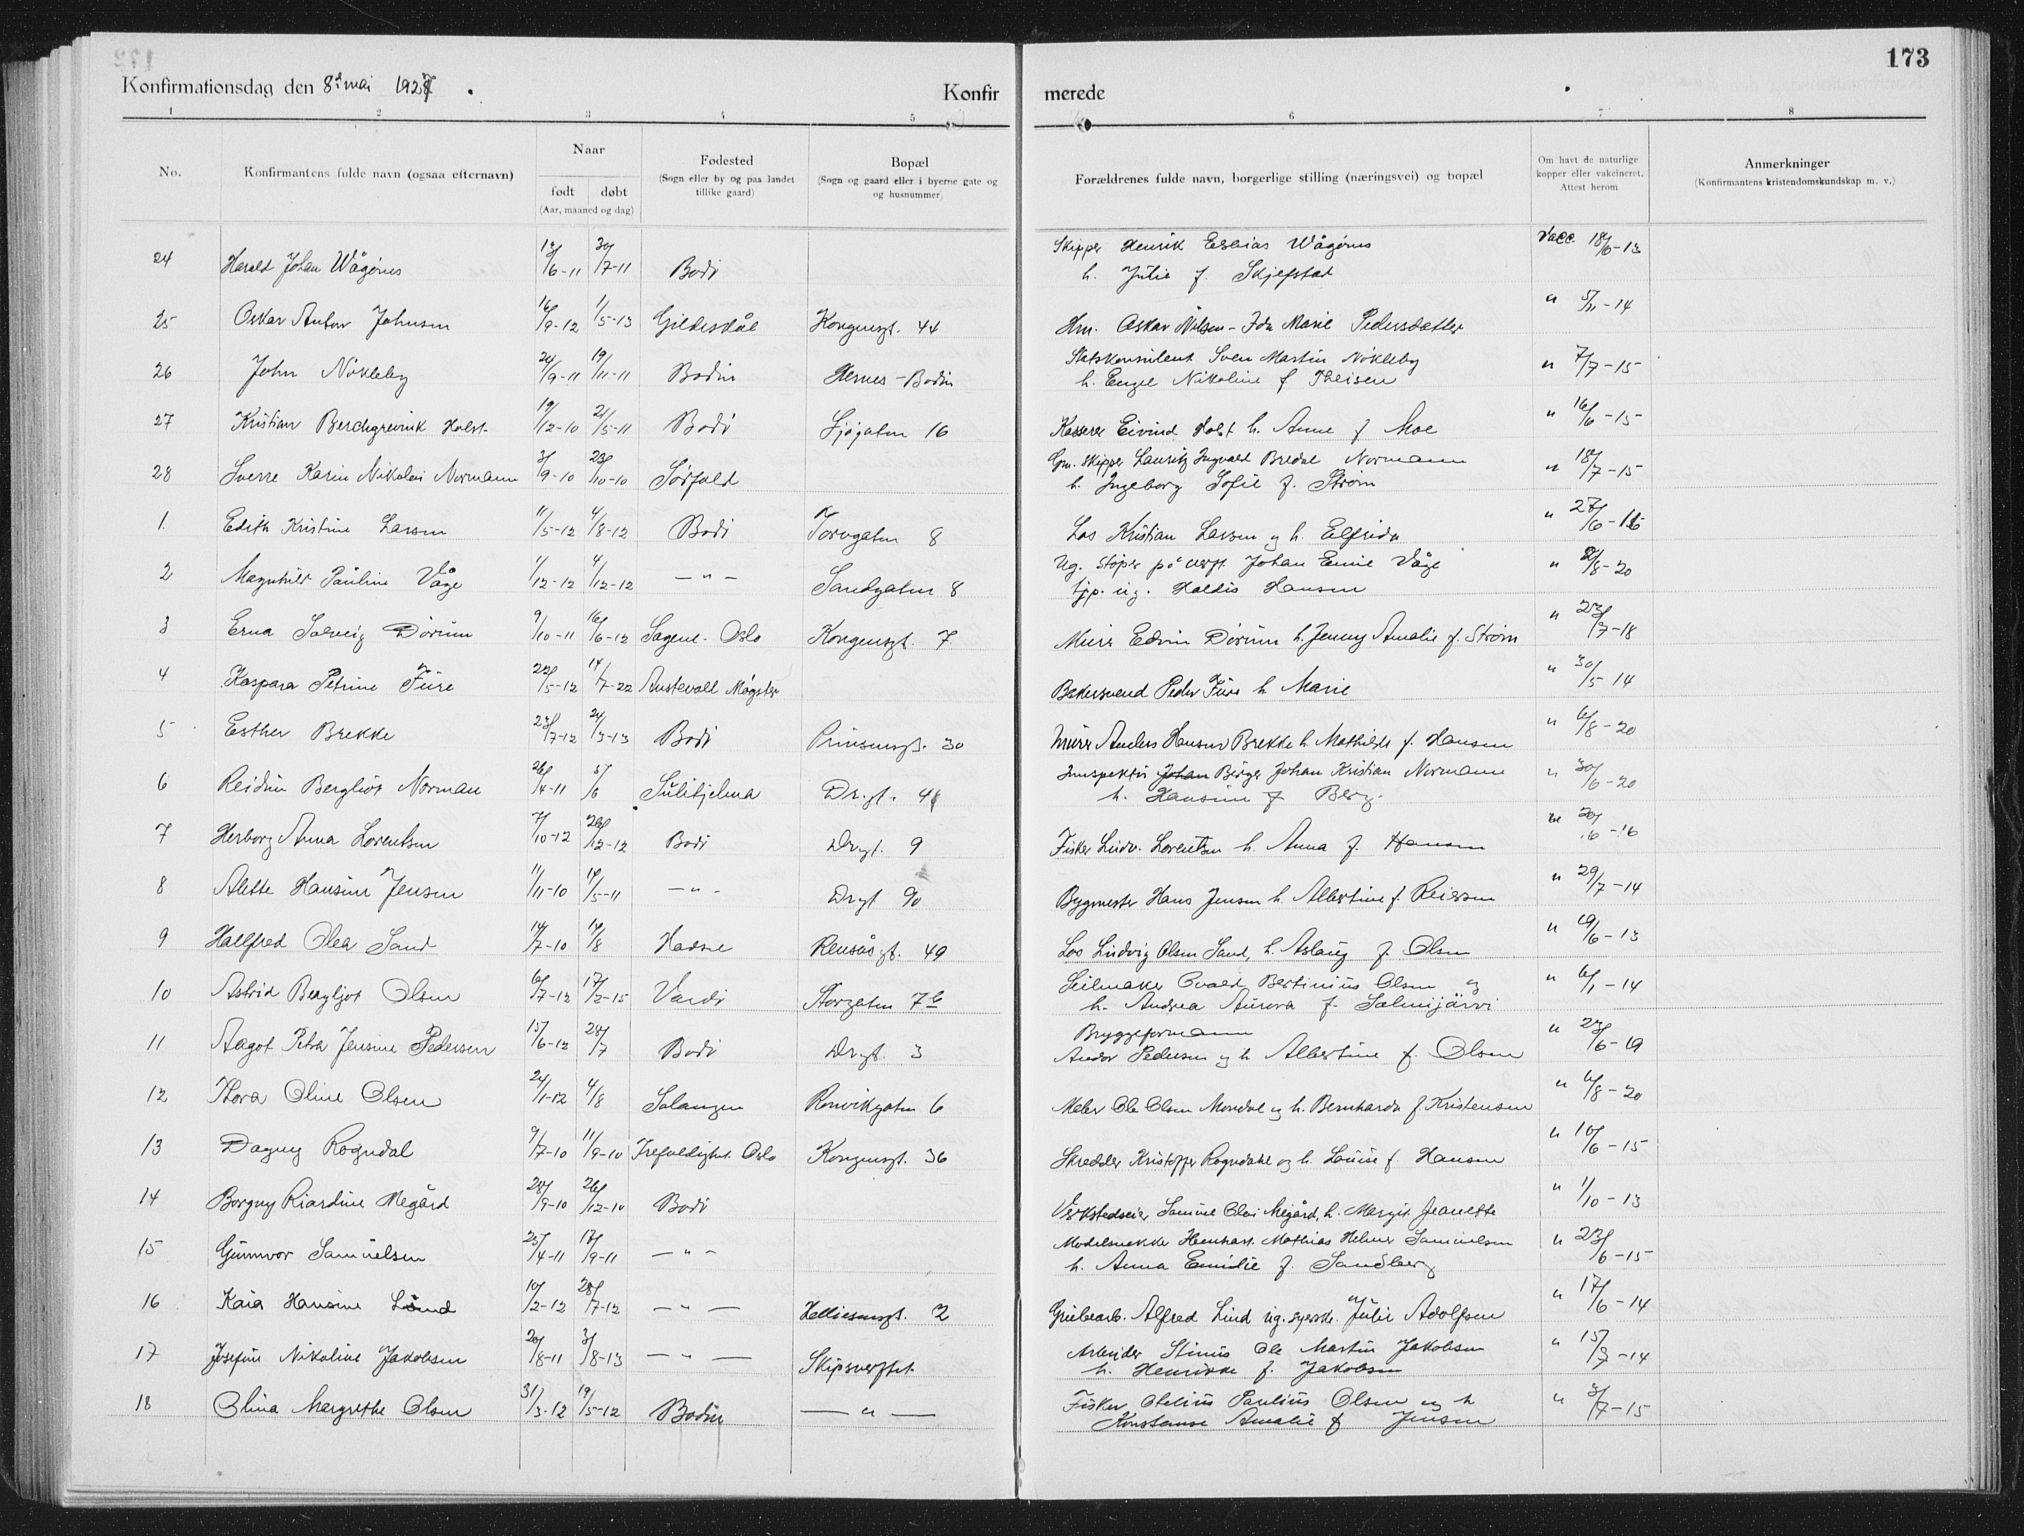 173
Konfirmationsdag den 8de mai 1927. Konfir merede
1 2 3 4 5 6 7 8
No. Konfirmantens fulde navn (ogsaa efternavn) Naar født døbt (Aar, maaned og dag) Fødested (Sogn eller by og paa landet tillike gaard) Bopæl (Sogn og gaard eller i byerne gate og og husnummer) Forældrenes fulde navn, borgerlige stilling (næringsvei) og bopæl Om havt de naturlige kopper eller vakcineret. Attest herom Anmerkninger (Konfirmantens kristendomskundskap m. v.)
Skipper Henrik Esaias Wågønes
24 Harald Johan Wågønes 13/6-11 30/7-11 Bodø Vacc. 18/6-13
h. Julie f. Skjefstad
25 Oskar Anton Johnsen 16/9-12 1/5-13 Gildeskål Kongensgt. 44 Hm. Oskar Nilsen - Ida Marie Pedersdatter " 5/11-14
Statskonsulent Sven Martin Nökleby
26 John Nökleby 24/9-11 19/11-11 Bodin Hernes - Bodin " 7/7-15
h. Engel Nikoline f. Theisen
27 Kristian Berchgrevink Holst 19/12-10 21/5-11 Bodø Sjøgaten 16 Kasserer Eivind Holst h. Anne f. Moe " 16/6-15
Gm. Skipper Lauritz Ingvald Bredal Normann
28 Sverre Karin Nikolai Normann 3/9-10 23/10-10 Sørfold " 18/7-15
h. Ingeborg Sofie f. Strøm
1. Edith Kristine Larsen 11/5-12 4/8-12 Bodø Torvgaten 8 Los Kristian Larsen og h. Elfrida " 27/6-16
Ug. Støper på verft. Johan Emil Våge
2 Magnhild Pauline Våge 1/12-12 4/12-12 — " — Sandgaten 8 " 2/8-20
tjp. ug. Haldis Hansen
3 Erna Solveig Dörum 9/10-11 16/6-12 Sagene - Oslo Kongensgt. 7 Murer Edvin Dörum h. Jenny Amalie f. Strøm " 23/7-18
4 Kaspara Petrine Fure 22/5-12 14/7-22 Austevold Møgster Bakersvend Peder Fure h. Marie " 30/5 14
5 Esther Brekke 23/7-12 24/3-13 Bodø Prinsensgt. 30 Murer Anders Hansen Brekke h. Mathilde f. Hansen " 6/8-20
Innspektør Birger Johan Kristian Normann
6 Reidun Bergliot Norman 26/4-11 5/6 Sulitjelma Drgt. 41 " 30/6-20
h. Hansine f. Berg.
7 Herborg Anna Lorentsen 7/10-12 26/12-12 Bodø Drgt. 9 Fisker Ludv. Lorentsen h. Anna f. Hansen " 20/6-16
8 Alette Hansine Jensen 11/11-10 14/5-11 — " — Drgt 90 Bygmester Hans Jensen h. Albertine f. Reiersen " 29/7-14
9 Hallfred Olea Sand 14/7-10 14/8 Hadsel Rensåsgt. 49 Los Ludvig Olsen Sand, h. Aslaug f. Olsen " 19/6-13
Seilmaker Evald Bertinius Olsen og
10 Astrid Bergljot Olsen 6/7-12 17/2-15 Vardø Storgaten 7b " 6/1-14
h. Andrea Aurora f. Salmijärvi
Bryggeformann
11 Aagot Petra Jensine Pedersen 15/6-12 28/7 Bodø Drgt. 3 " 23/6-19
Andor Pedersen og h. Albertine f. Olsen
12 Thora Oline Olsen 24/1-12 4/8 Salangen Rønvikgaten 6 Maler Ole Olsen Mondal og h. Bernharda f. Kristensen " 6/8-20
13 Dagny Rogndal 9/7-10 11/9-10 Trefoldighet. Oslo Kongensgt. 36 Skredder Kristoffer Rogndahl og h. Louise f. Hansen " 10/6-15
14 Borgny Riardine Megård 28/9-10 26/12-10 Bodø Verkstedseier Samuel Olai Megård, h. Margit Jeanette " 1/10-13
Modelsnekker Henhart. Mathias Helmer Samuelsen
15 Gunnvor Samuelsen 25/4-11 17/9-11 — " — " 23/6-15
h. Anna Emilie f. Sandberg
16 Kaia Hansine Lund 10/2-12 28/7-12 — " — Helliesensgt. 2 Grubearb. Alfred Lind ug. syersk. Julie Adolfsen " 17/6-14
Arbeider Stinus Ole Martin Jakobsen
17 Josefine Nikoline Jakobsen 20/8-11 3/8-13 — " — Skipsverftet " 15/7-14
h. Henrikke f. Jakobsen
Fisker Otelius Paulius Olsen og h
18 Olina Margrethe Olsen 31/3-12 19/5-12 Bodin — " — " 3/7-15
Konstanse Amalie f. Jensen